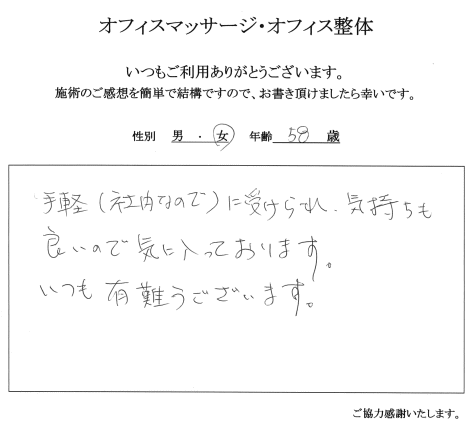 オフィスマッサージ・オフィス整体
いつもご利用ありがとうございます。
施術のご感想を簡単で結構ですので、お書き頂けましたら幸いです。
性別 男 ・ 女 年齢 58 歳
手軽(社内なので)に受けられ、気持ちも
良いので気に入っております。
いつも有難うございます。
ご協力感謝いたします。